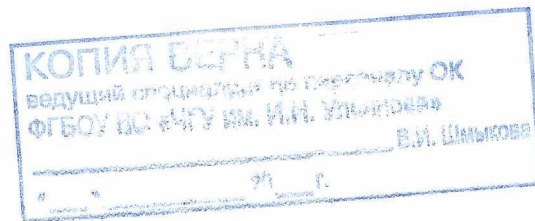 КОПИЯ ВЕРНА
ведущий специалист по персоналу ОК
ФГБОУ ВО «ЧГУ им. И.Н. Ульянова»
В.И. Шмыкова
"___"____________20___г.